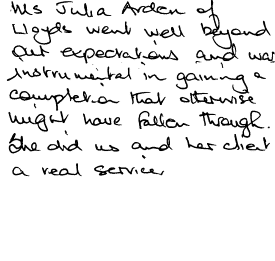 Ms Julia Arden of
Lloyds went well beyond
our expectations and was
instrumental in gaining a
completion that otherwise
might have fallen through.
She did us and her client
a real service